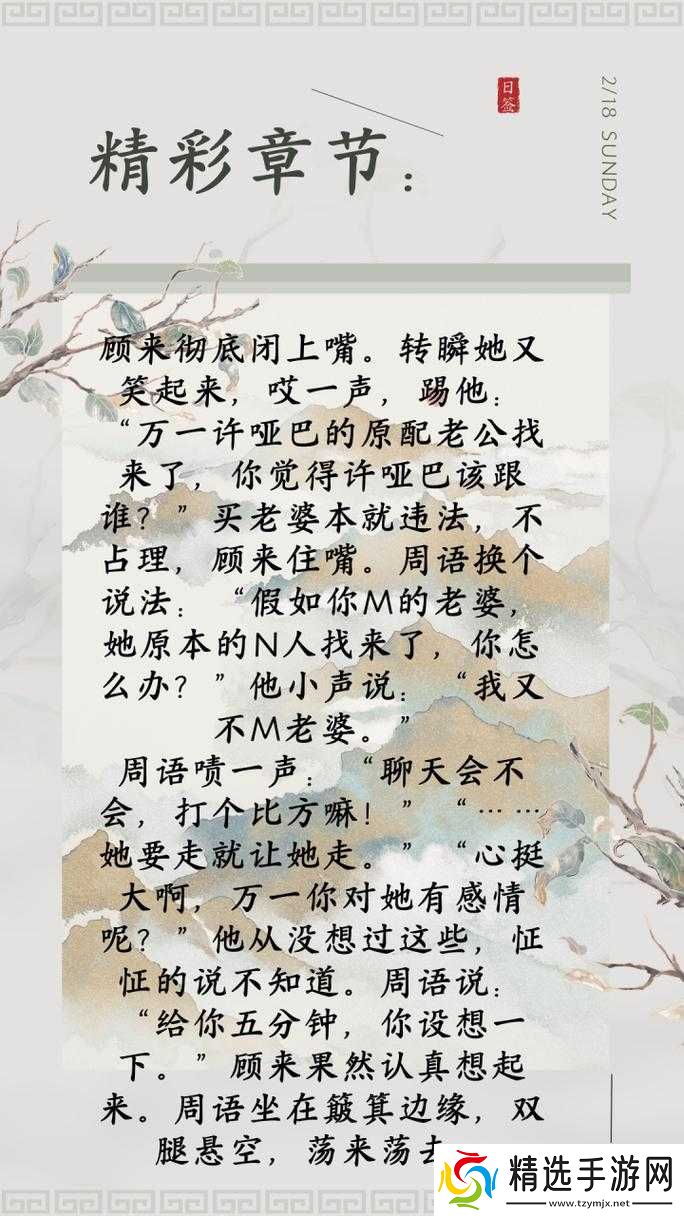 日签
2/18 SUNDAY
精彩章节：
顾来彻底闭上嘴。转瞬她又
笑起来，哎一声，踢他：
“万一许哑巴的原配老公找
来了，你觉得许哑巴该跟
谁？”买老婆本就违法，不
占理，顾来住嘴。周语换个
说法：“假如你M的老婆，
她原本的N人找来了，你怎
么办？”他小声说：“我又
不M老婆。”
周语啧一声：“聊天会不
会，打个比方嘛！”“……
她要走就让她走。”“心挺
大啊，万一你对她有感情
呢？”他从没想过这些，怔
怔的说不知道。周语说：
“给你五分钟，你设想一
下。”顾来果然认真想起
来。周语坐在簸箕边缘，双
腿悬空，荡来荡去
精选手游网
www.tzymjx.net